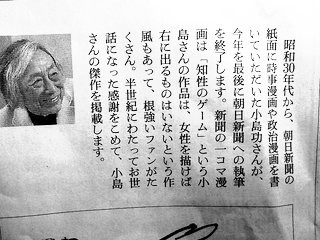 昭和30年代から、朝日新聞の
紙面に時事漫画や政治漫画を書
いていただいた小島功さんが、
今年を最後に朝日新聞への執筆
を終了します。新聞の一コマ漫
画は「知性のゲーム」という小
島さんの作品は、女性を描けば
右に出るものはいないという作
風もあって、根強いファンがた
くさん。半世紀にわたってお世
話になった感謝をこめて、小島
さんの傑作を掲載します。